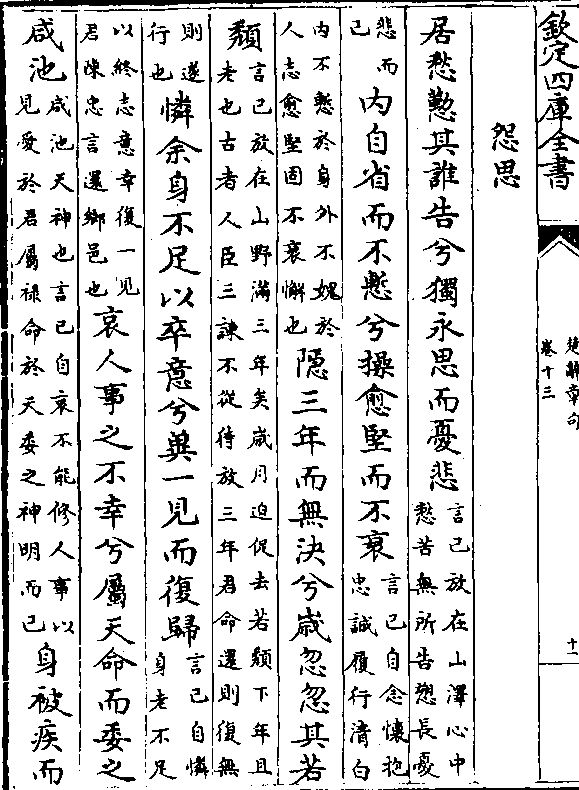 欽定四庫全書
楚辭章句
卷十三
十一
怨思
居愁懃其誰告兮獨永思而憂悲言已放在山澤心中愁苦無所告愬長憂
悲而已內自省而不慙兮操愈堅而不衰言已自念懷抱忠誠履行清白
內不慙於身外不媿於人志愈堅固不衰懈也隱三年而無決兮歲忽忽其若
頹言已放在山野滿三年矣歲月迫促去若頹下年且老也古者人臣三諫不從待放三年君命還則復無
則遂行也憐余身不足以卒意兮兾一見而復歸言已自憐身老不足
以終志意幸復一見君陳忠言還鄉邑也哀人事之不幸兮屬天命而委之
咸池咸池天神也言已自哀不能修人事以見愛於君屬祿命於天委之神明而已身被疾而